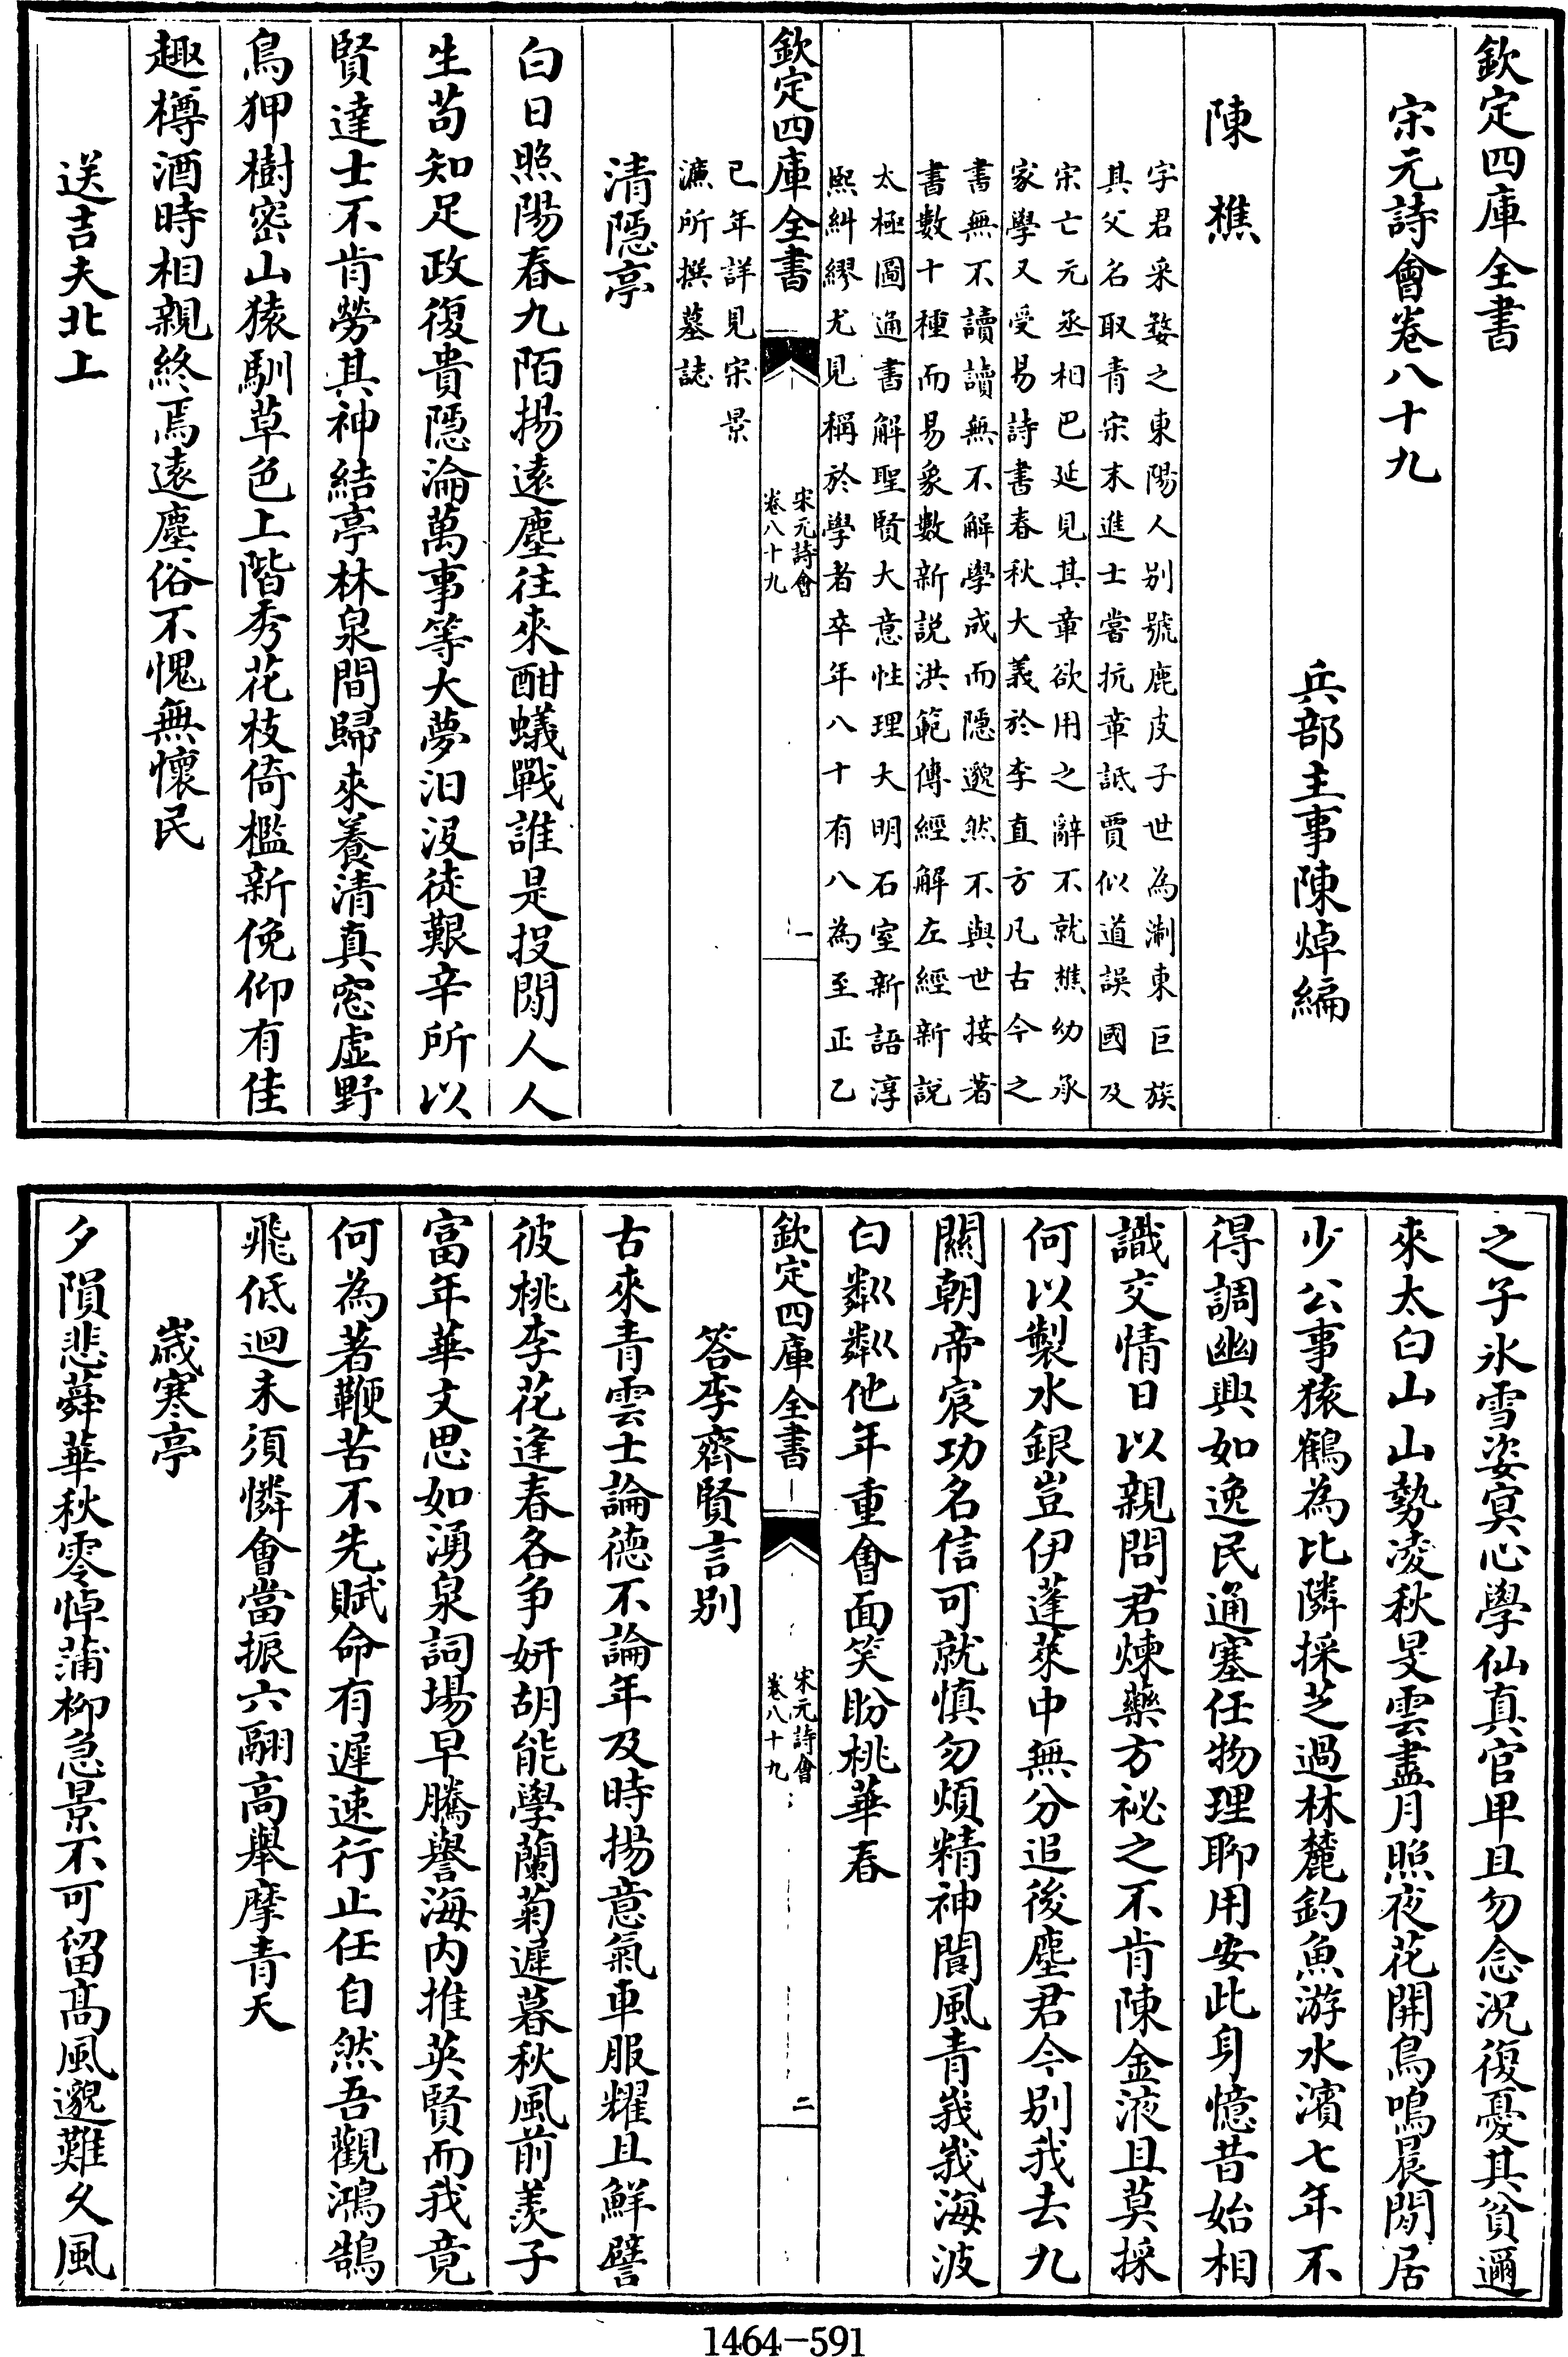 欽定四庫全書
宋元詩會卷八十九
兵部主事陳焯編
陳樵
字君采婺之東陽人别號鹿皮子世為淛東巨族
其父名取青宋末進士嘗抗章詆賈似道誤國及
宋亡元丞相巴延見其章欲用之辭不就樵幼承
家學又受易詩書春秋大義於李直方凡古今之
書無不讀讀無不解學成而隱邈然不與世接著
書數十種而易象數新説洪範傳經解左經新説
太極圖通書解聖賢大意性理大明石室新語淳
熙糾繆尤見稱於學者卒年八十有八為至正乙
欽定四庫全書
宋元詩會
卷八十九
一
已年詳見宋景
濂所撰墓誌
清隱亭
白日照陽春九陌揚遠塵往來酣蟻戰誰是投閒人人
生苟知足政復貴隱淪萬事等大夢汨沒徒艱辛所以
賢達士不肯勞其神結亭林泉間歸來養清真窓虚野
鳥狎樹密山猿馴草色上階秀花枝倚檻新俛仰有佳
趣樽酒時相親終焉遠塵俗不愧無懷民
送吉夫北上
之子氷雪姿冥心學仙真官卑且勿念況復憂其貧邇
來太白山山勢凌秋旻雲盡月照夜花開鳥鳴晨閒居
少公事猿鶴為比隣採芝過林麓釣魚游水濱七年不
得調幽興如逸民通塞任物理聊用安此身憶昔始相
識交情日以親問君煉藥方祕之不肯陳金液且莫採
何以製水銀豈伊蓬萊中無分追後塵君今别我去九
關朝帝宸功名信可就慎勿煩精神閶風青峩峩海波
白粼粼他年重會面笑盼桃華春
欽定四庫全書
宋元詩會
卷八十九
二
答李齊賢言别
古來青雲士論德不論年及時揚意氣車服耀且鮮譬
彼桃李花逢春各争妍胡能學蘭菊遲暮秋風前羨子
富年華文思如湧泉詞場早騰譽海内推英賢而我竟
何為著鞭苦不先賦命有遲速行止任自然吾觀鴻鵠
飛低迴未須憐會當振六翮高舉摩青天
歲寒亭
夕隕悲蕣華秋零悼蒲柳急景不可留髙風邈難久風
1464-591